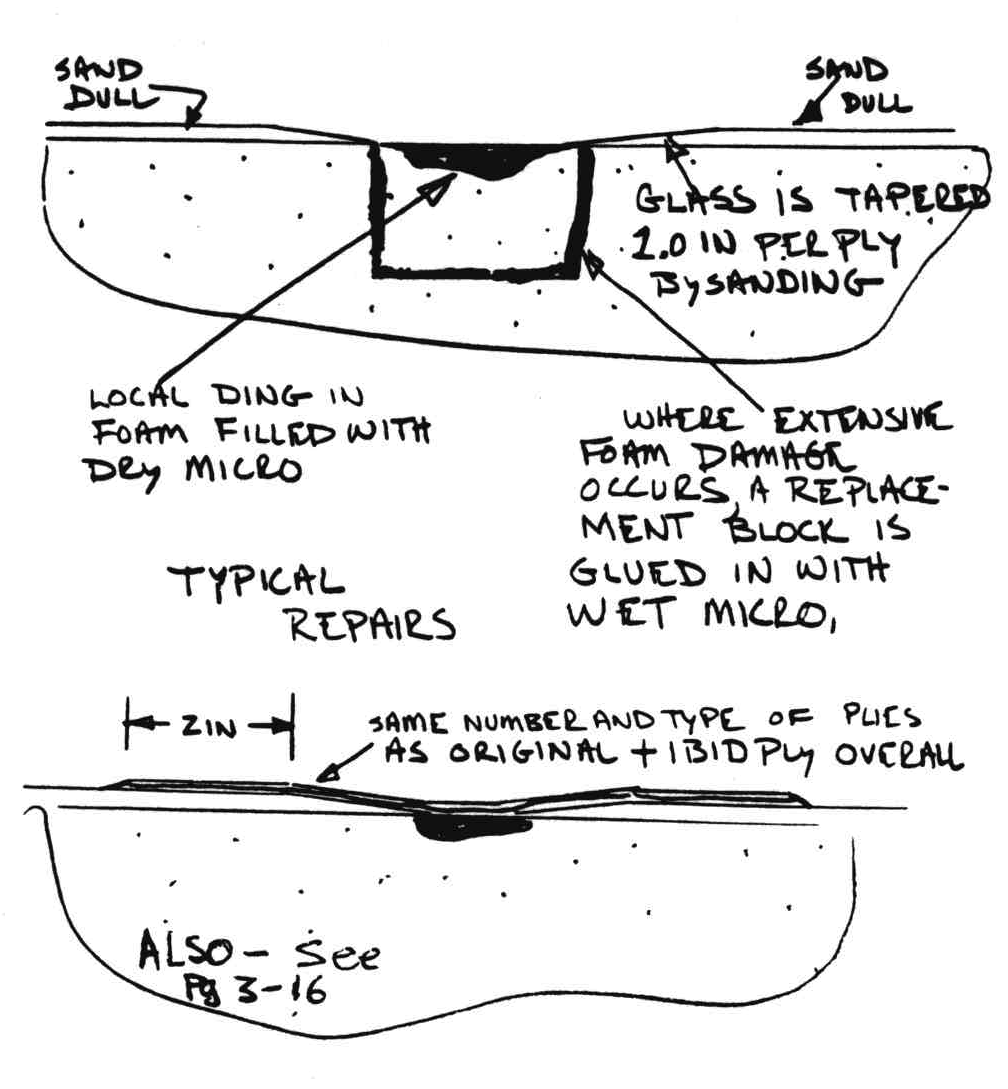 SAND
DULL
SAND
DULL
GLASS IS TAPERED
1.0 IN PER PLY
By SANDING
LOCAL DING IN
FOAM FILLED WITH
DRy MICRO
WHERE EXTENSIVE
FOAM DAMAGE
OCCURS, A REPLACE-
MENT BLOCK IS
GLUED IN WITH
WET MICRO,
TYPICAL
REPAIRS
2 IN
SAME NUMBER AND TYPE OF PLIES
AS ORIGINAL + 1 BID PLy OVERALL
ALSO - See
Pg 3-16